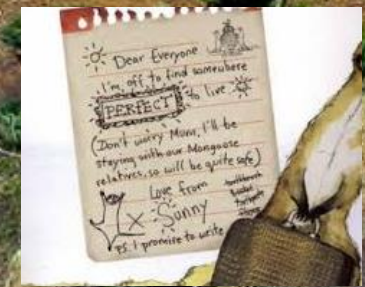 Dear Everyone
I'm off to find somewhere
PERFECT to live
(Don't worry Mum, I'll be
staying with our Mongoose
relatives, so will be quite safe)
Love from
X Sunny
PS. I promise to write